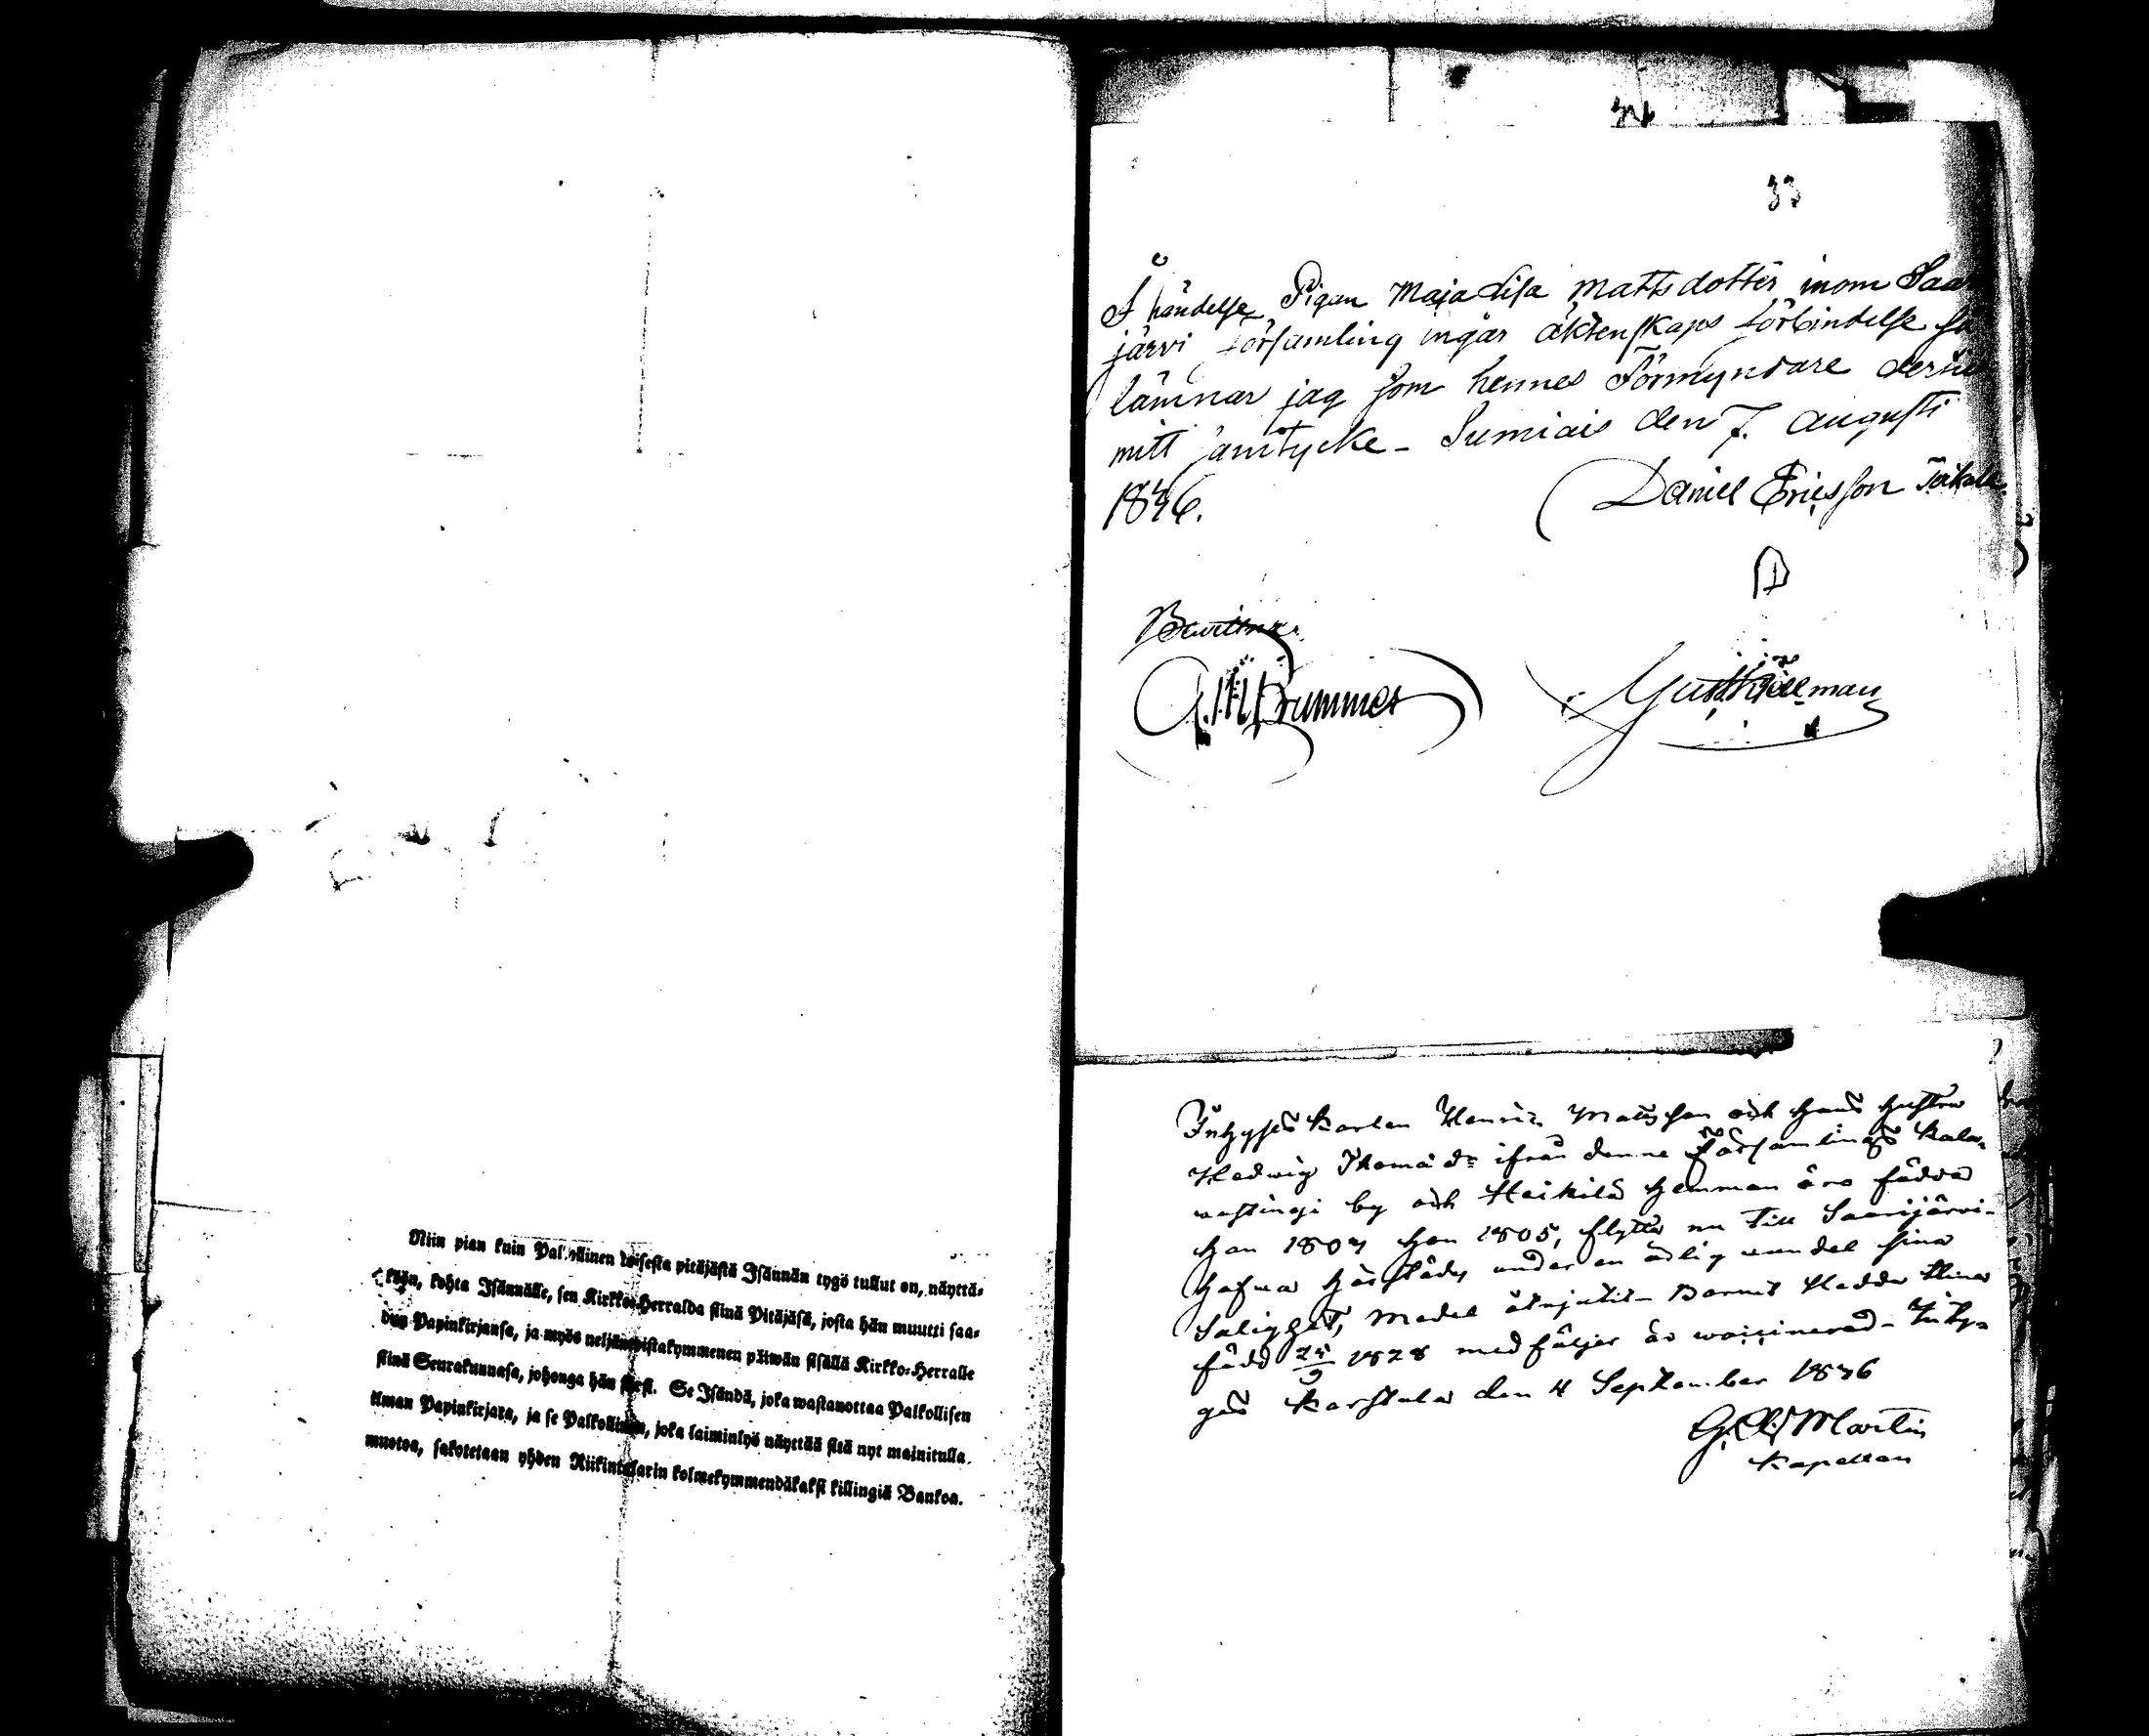 Niin pian kuin Palkollinen toisesta pitäjästä Isännän tygö tullut on, näyttä-
köön, kohta Isännälle, sen Kirkko-Herralda siinä Pitäjäsä, josta hän muutti saa-
dun Papinkirjansa, ja myös neljäntoistakymmenen päiwän sisällä Kirkko-Herralle
siinä Seurakunnasa, johonga hän siirsi. Se Isändä, joka wastanottaa Palkollisen
ilman Papinkirjata, ja se Palkollinen, joka laiminlyö näyttää sitä nyt mainitulla
muotoa, sakotetaan yhden Riikintalarin kolmekymmendäkaksi killingiä Bankoa.
33
I händelse Pigan Maja Lisa Mattsdotter inom Saar
järvi församling ingår äktenskaps förbindelse så
lämnar jag som hennes Förmyndare dertill
mitt samtycke - Sumiais den 7. Augusti
1846.
Daniel Ericsson
Bewittna
Brummer
Inhyses Karlen Henric Matsson och hans hustru
Hedwig Thomäd:r ifrån denne Församlings Kala-
by och Heikilä hemman äro födda
han 1807 hon 1805, flytta nu till Saarijärvi-
hafwa härstädes under en ärlig wandel sina
Salighets Medel åtnjutit - Barnet Hedda Stina
född 25/9 1828 medföljer är waccinerad - Inty-
gas Karstula den 4 September 1846
Martin
Kapellan